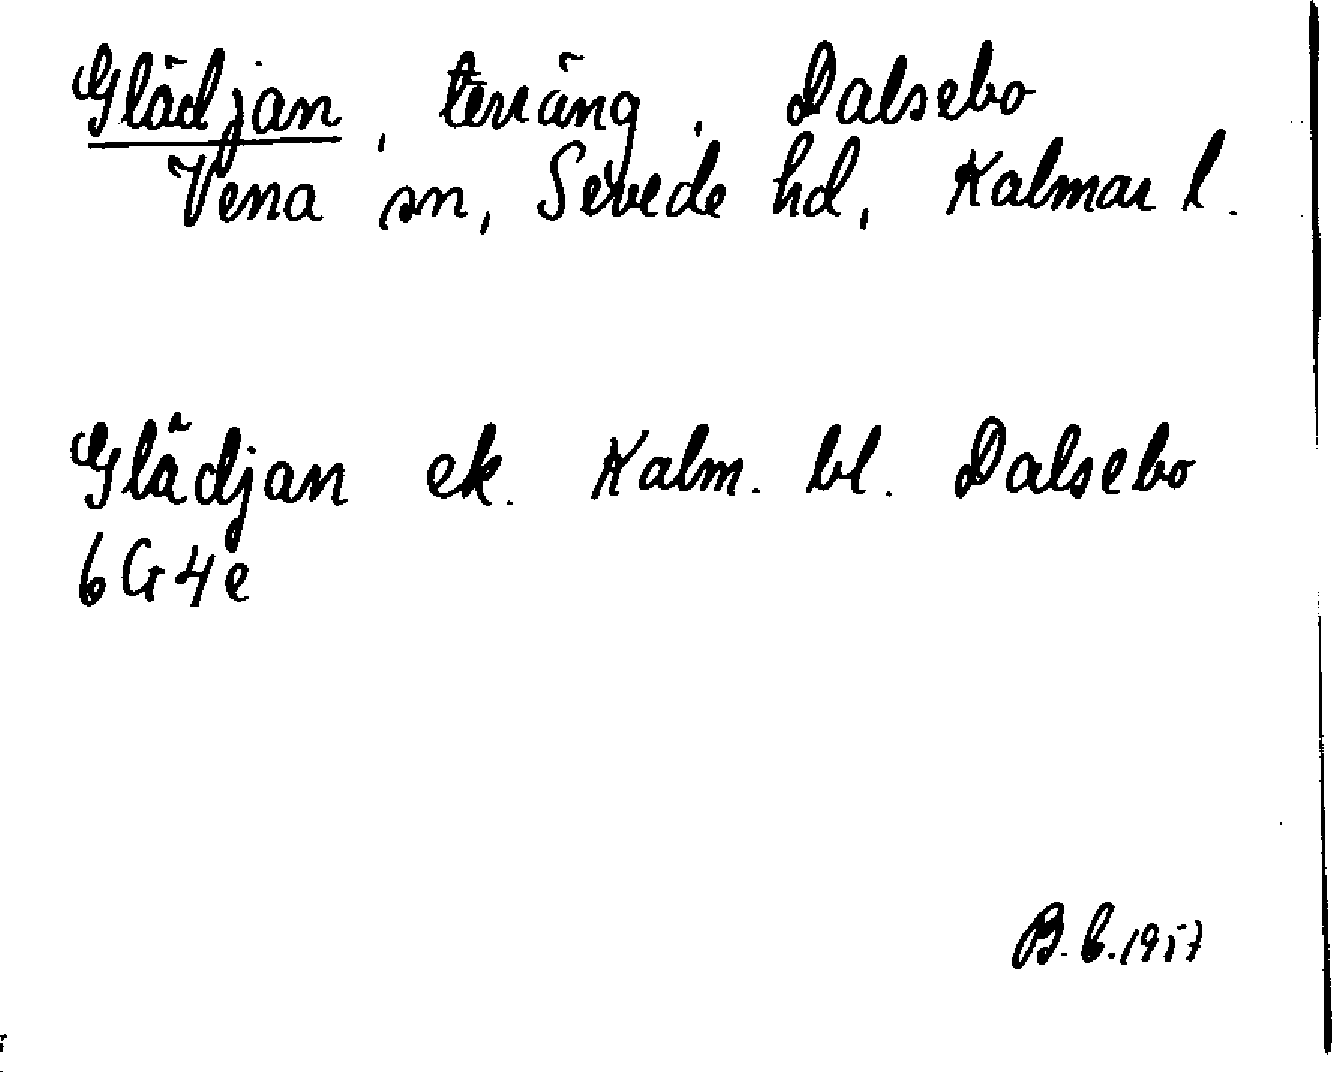 Glädjan, terräng, Dalsebo
Vena sn, Sevede hd, Kalmar l.
Glädjan ek. Kalm. bl. Dalsebo
6G4e
B.G. 1957